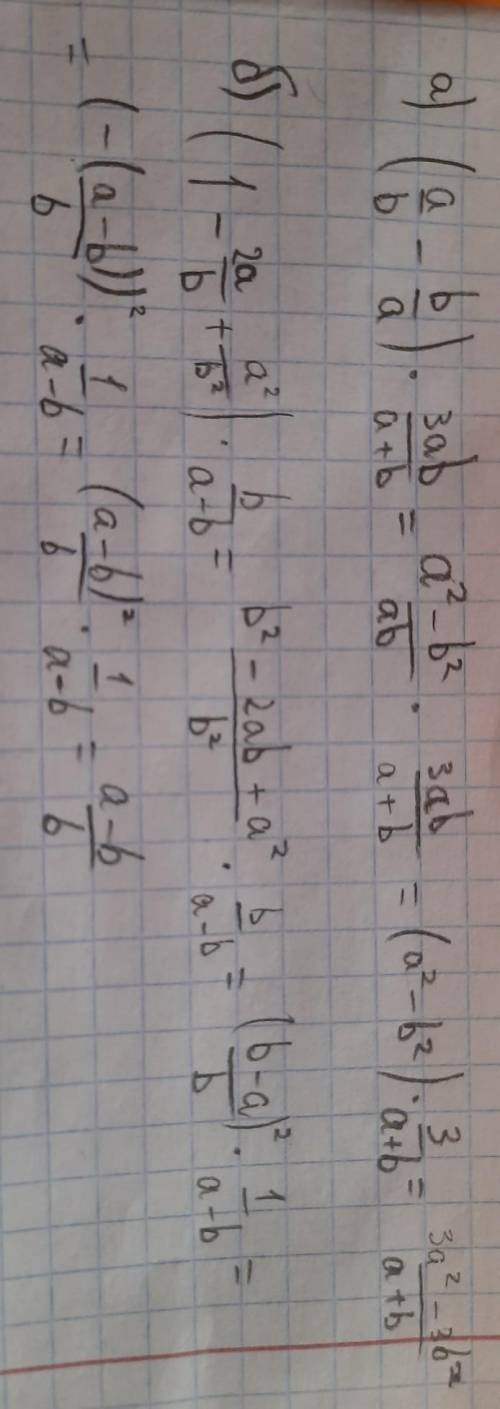 а) (a/b − b/a) · 3ab/(a+b) = (a² − b²)/ab · 3ab/(a+b) = (a² − b²) · 3/(a+b) = (3a² − 3b²)/(a+b)
б) (1 − 2a/b + a²/b²) · b/(a−b) = (b² − 2ab + a²)/b² · b/(a−b) = (b−a)²/b · 1/(a−b) =
= (−(a−b))²/b · 1/(a−b) = (a−b)²/b · 1/(a−b) = (a−b)/b